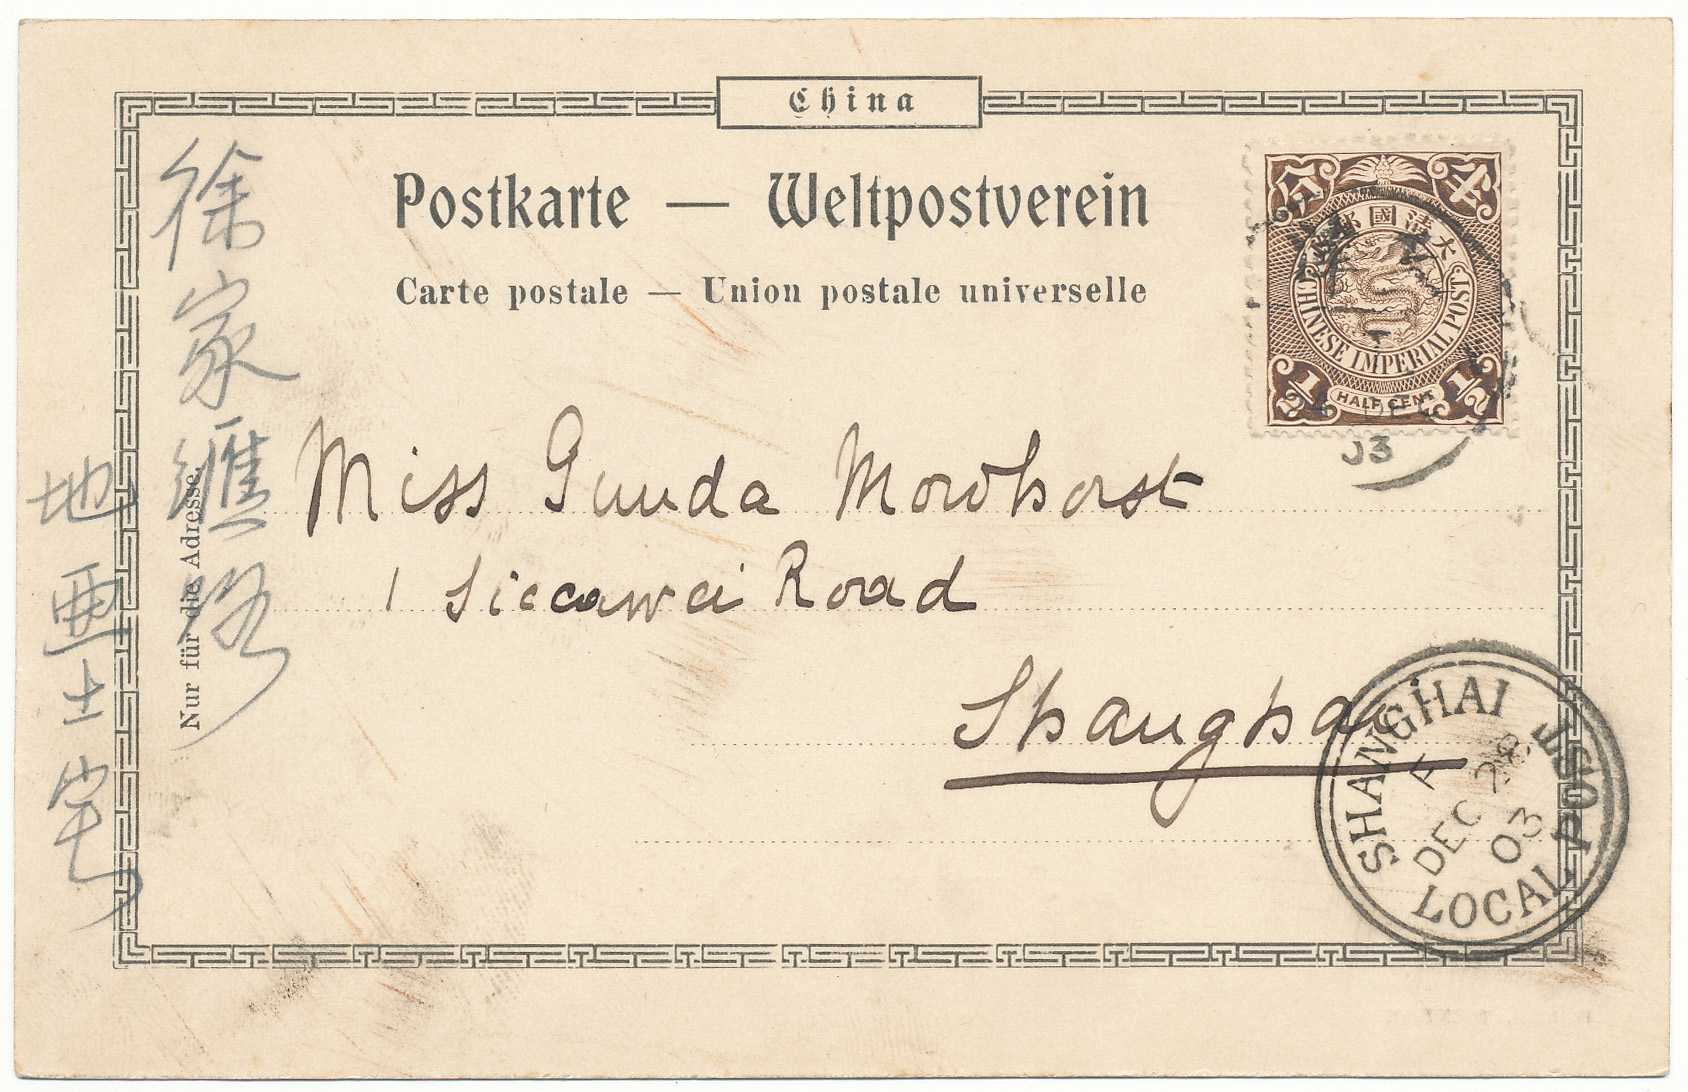 China
Postkarte — Weltpostverein
Carte postale — Union postale universelle
大清國郵政
CHINESE IMPERIAL POST
HALF CENT
1/2 1/2
Miss Gunda Mordhorst
1 Siccawei Road
Shanghai
Nur für die Adresse.
徐家匯路
地 士宅
SHANGHAI LOCAL POST
DEC 28
03